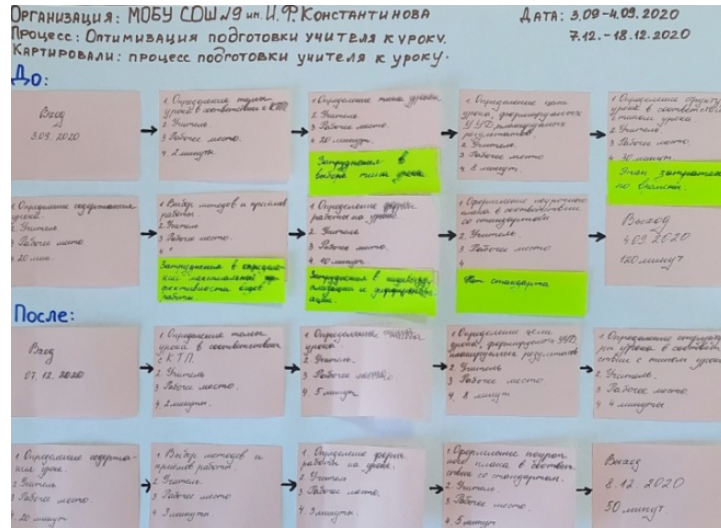 Организация: МОБУ СОШ №9 им. И.Ф.Константинова
Дата: 3.09-4.09.2020
7.12.-18.12.2020
Процесс: Оптимизация подготовки учителя к уроку.
Картировали: процесс подготовки учителя к уроку.
До:
Вход
3.09.2020
1 Определения темы
урока в соответствии с КТП.
2 Учитель.
3 Рабочее место.
4 2 минуты
1 Определение типа урока
2 Учитель.
3 Рабочее место.
4 20 минут.
Затруднения в
выборе типа урока
1 Определение цели
урока, формируемых
УУД, планируемых
результатов
2 Учитель.
3 Рабочее место
4 8 минут
1 Определение
урока в соответствии
типом урока
2 Учитель
3 Рабочее место
минут
Этап
по времени.
1 Определение содержания
урока.
2 Учитель.
3 Рабочее место
4 20 мин.
1 Выбор методов и приёмов
работы.
2 Учитель
3 Рабочее место.
4
Затруднения в
работы
1 Определение формы
работы на уроке.
2 Учитель.
3 Рабочее место.
4 минут
Затруднения в
1 Оформление поурочного
плана в соответствии
со стандартом
2 Учитель.
3 Рабочее место
4
Нет стандарта
Выход
4.09.2020
120 минут
После:
Вход
07.12.2020
1 Определения темы
урока в соответствии
с КТП.
2 Учитель
3 Рабочее место.
4 2 минуты.
1 Определение
урока
2 Учитель.
3 Рабочее место.
4 5 минут
1 Определение цели
урока, формируемых УУД,
планируемых результатов
2 Учитель
3 Рабочее место
4 8 минут
1 Определение
урока в
с типом урока
2 Учитель.
3 Рабочее место
4 4 минуты
1 Определение содержа-
ния урока.
2 Учитель
3 Рабочее место.
4 20 минут
1 Выбор методов и
приёмов работы.
2 Учитель.
3 Рабочее место
4 3 минуты
1 Определение формы
работы на уроке.
2 Учитель
3 Рабочее место.
4 3 минуты.
1 Оформление поуроч-
ного плана в соответ-
ствие со стандартом.
2 Учитель.
3 Рабочее место
4 5 минут
Выход
8.12.2020
50 минут.